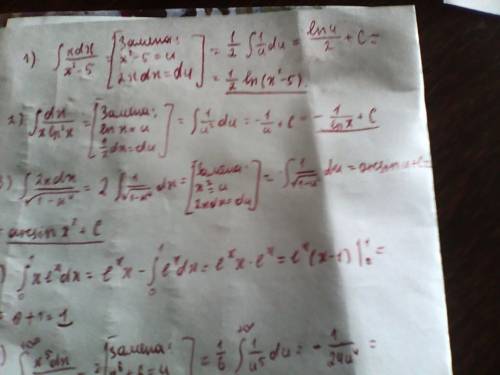 1) ∫ xdx / x²-5 = [Замена: x²-5=u 2xdx=du] = 1/2 ∫ 1/u du = ln u / 2 + C =
= 1/2 ln(x²-5)
2) ∫ dx / x ln²x = [Замена: ln x = u 1/x dx = du] = ∫ 1/u² du = -1/u + C = -1/ln x + C
3) ∫ 2xdx / √1-x⁴ = 2 ∫ 1/√1-x⁴ dx = [Замена: x²=u 2xdx=du] = ∫ 1/√1-u² du = arcsin u + C =
= arcsin x² + C
) ∫₀¹ x eˣ dx = eˣ x - ∫₀¹ eˣ dx = eˣ x - eˣ = eˣ (x-1) |₀¹ =
= 0 + 1 = 1
) ∫ +∞ x⁵ dx = [Замена: x⁶+6=u = 1/6 ∫ +∞ 1/u⁵ du = - 1/24u⁴ =